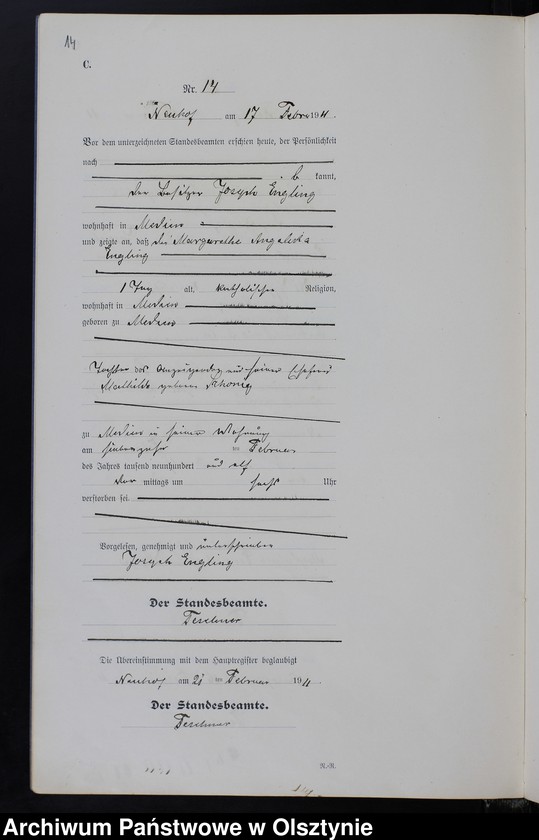 14
C.
Nr. 14
Neuhof am 17 Febru 1911.
Vor dem unterzeichneten Standesbeamten erschien heute, der Persönlichkeit
nach
be kannt,
der Besitzer Joseph Engling
wohnhaft in Medien
und zeigte an, daß die Margarethe Angelika
Engling
1 Tag alt, katholischer Religion,
wohnhaft in Medien
geboren zu Medien
Tochter des Anzeigenden und seiner Ehefrau
Mathilde geborene
zu Medien in seiner Wohnung
am siebenzehn ten Februar
des Jahres tausend neunhundert und elf
Vor mittags um sechs Uhr
verstorben sei.
Vorgelesen, genehmigt und unterschrieben
Joseph Engling
Der Standesbeamte.
Teschner
Die Übereinstimmung mit dem Hauptregister beglaubigt
Neuhof am ten Februar 1911
Der Standesbeamte.
Teschner
R.-R.
Archiwum Państwowe w Olsztynie